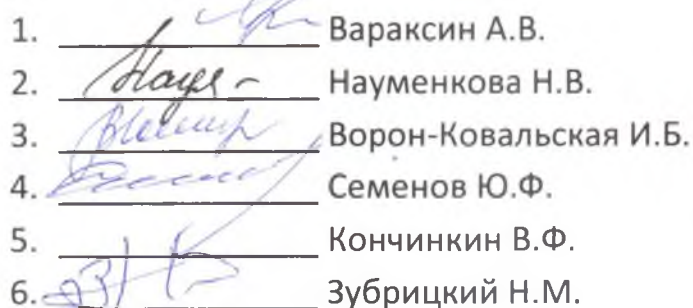 1. Вараксин А.В.
2. Науменкова Н.В.
3. Ворон-Ковальская И.Б.
4. Семенов Ю.Ф.
5. Кончинкин В.Ф.
6. Зубрицкий Н.М.